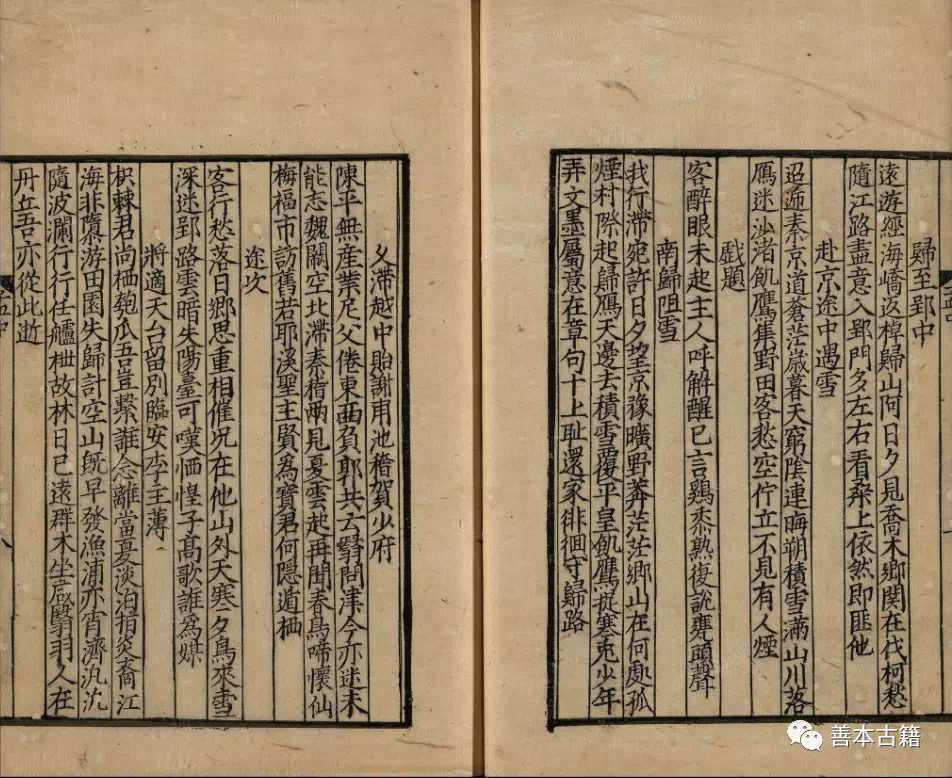 歸至郢中
遠遊經海嶠返棹歸山阿日夕見喬木鄉関在伐柯愁
隨江路盡意入郢門多左右看桑上依然即匪他
赴京途中遇雪
迢遞秦京道蒼茫歳暮天窮陰連晦朔積雪滿山川落
鴈迷沙渚飢鷹集野田客愁空佇立不見有人煙
戯題
客醉眠未起主人呼解酲已言鷄黍熟復說甕頭聲
南歸阻雪
我行滯宛許日夕望京豫曠野莽茫茫鄉山在何處孤
煙村際起歸鴈天邊去積雪覆平皇飢鷹捉寒兎少年
弄文墨屬意在章句十上耻還家徘徊守歸路
久滯越中貽謝甫池稽賀少府
陳平無産業尼父倦東西負郭共云翳問津今亦迷未
能忘魏闕空北滯秦稽兩見夏雲起再聞春鳥啼懷仙
梅福市訪舊若耶溪聖主賢為寶君何隱遁栖
途次
客行愁落日鄉思重相催况在他山外天寒夕鳥來雪
深迷郢路雲暗失陽臺可嘆恓惶子髙歌誰為媒
將適天台留別臨安李主薄
枳棘君尚栖匏瓜吾豈繫誰念離當夏淡泊指炎裔江
海非隳游田園失歸計空山既早發漁浦亦宵濟汎沉
隨波瀾行行任艫枻故林日已遠群木坐成翳羽人在
丹丘吾亦從此逝
善本古籍